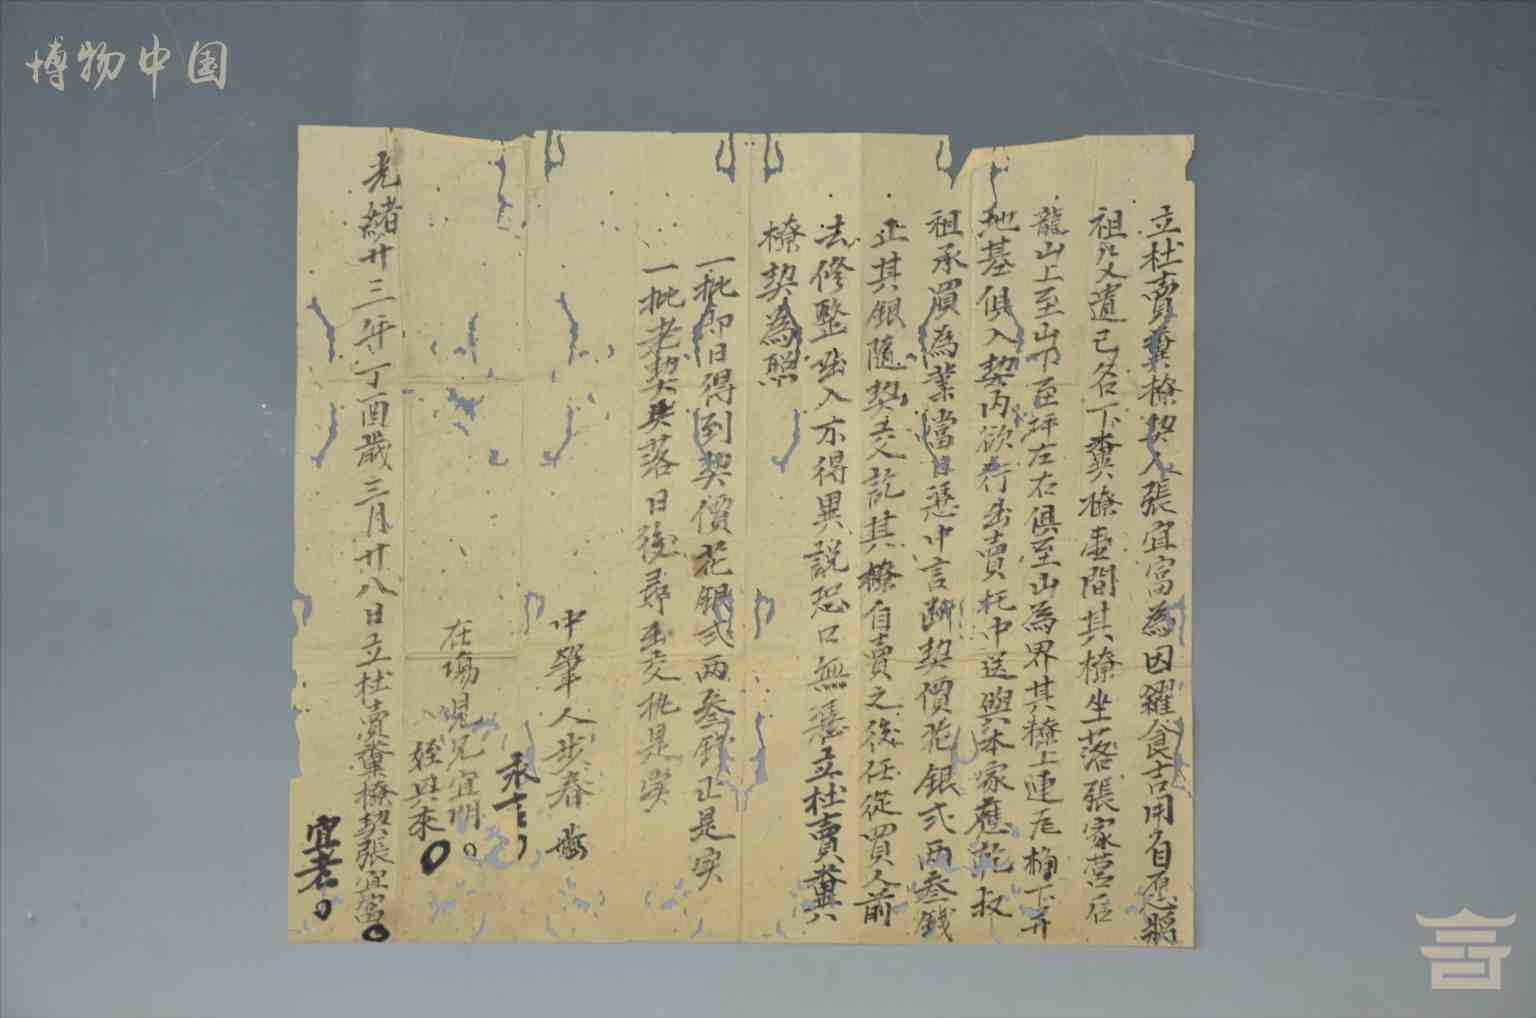 博物中国
立杜賣糞橑契人張宜富為因糴食吉用自愿將
祖父遺己名下糞橑壹間其橑坐落張家莒后
龍山上至山下至坪左右俱至山為界其橑上連瓦桷下并
地基俱入契內欲行出賣托中送與本家應乾叔
祖承買為業當日憑中言斷契價花銀弍兩叁錢
正其銀隨契交訖其橑自賣之後任從買人前
去修整出入不得異説恐口無憑立杜賣糞
橑契為照
一批即日得到契價花銀弍兩叁錢正是実
一批老契失落日後尋出交执是实
中筆人步春
永言
在塲見兄宜明
姪興來
光緒廿三年丁酉歲三月廿八日立杜賣糞橑契張宜富
宜老